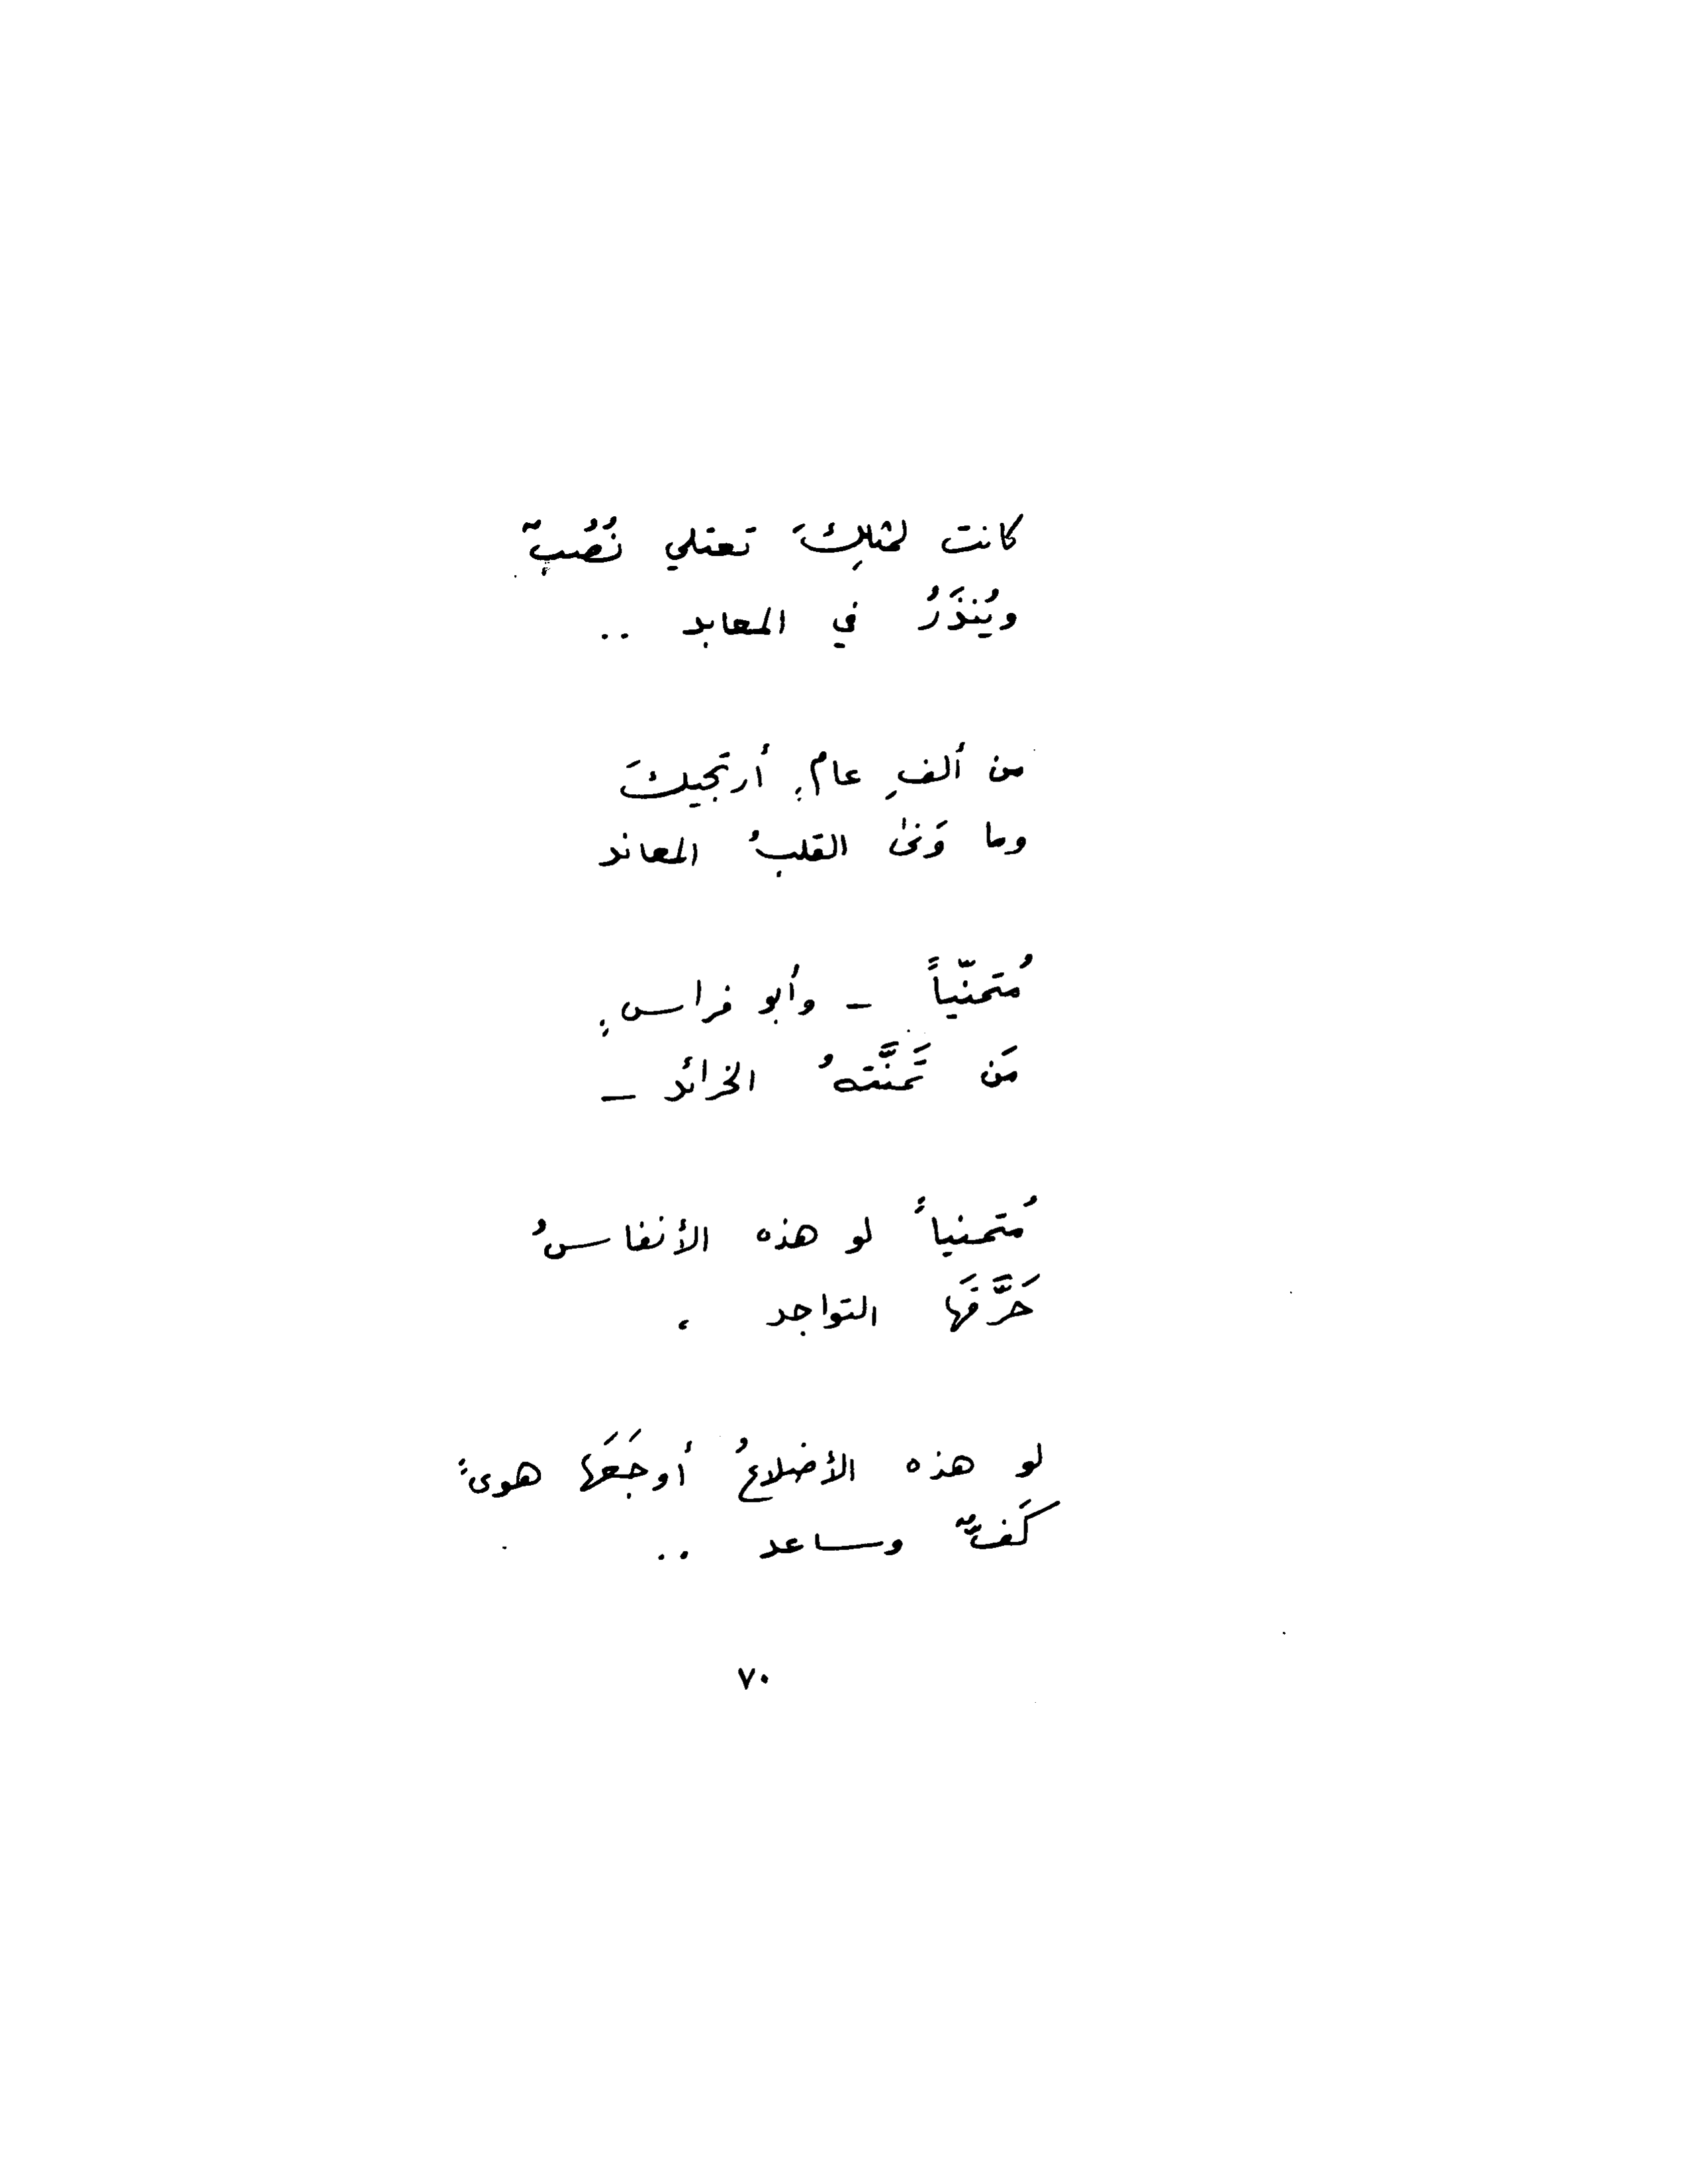 كانت لمثلِكَ تعتلي نُصُبٌ
ويُنذَرُ في المعابد ..
من ألفِ عامٍ أرتجيكَ
وما وَنىٰ القلبُ المعاند
مُتمنّياً – وأبو فراسٍ
مَن تَمنَّتهُ الخرائد –
مُتمنياً لو هذه الأنفاسُ
حَرَّقَها التواجد ،
لو هذه الأضلاعُ أوجَعَها هوىً
كَفٌّ وساعد ..
٧٠